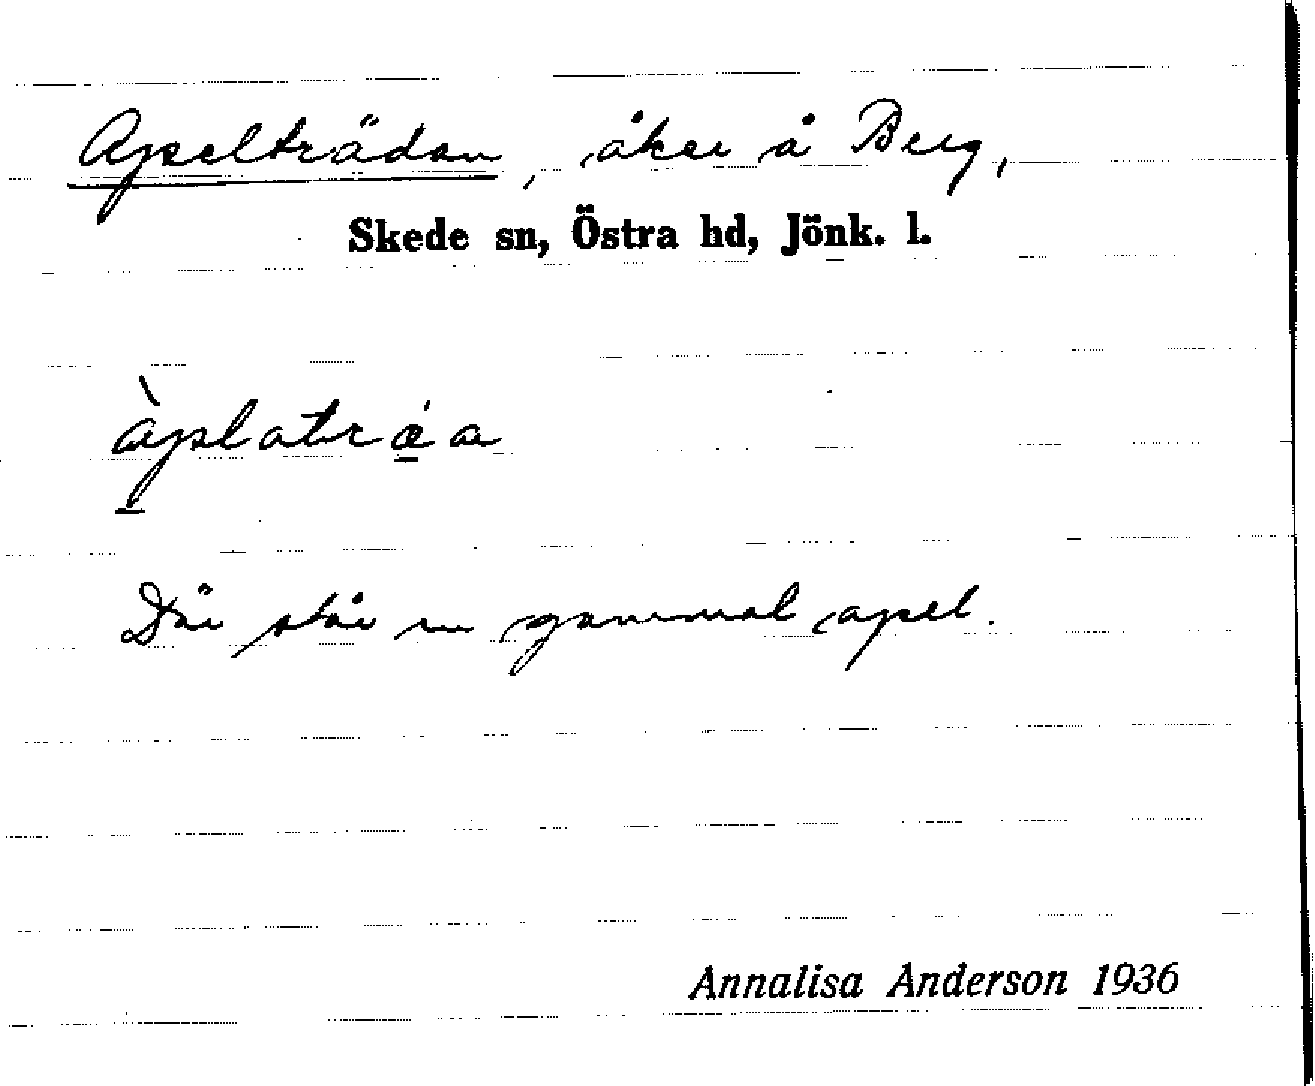 Apelträdan, åker å Berg,
Skede sn, Östra hd, Jönk. l.
àplatrǽa
Där står en gammal apel.
Annalisa Anderson 1936